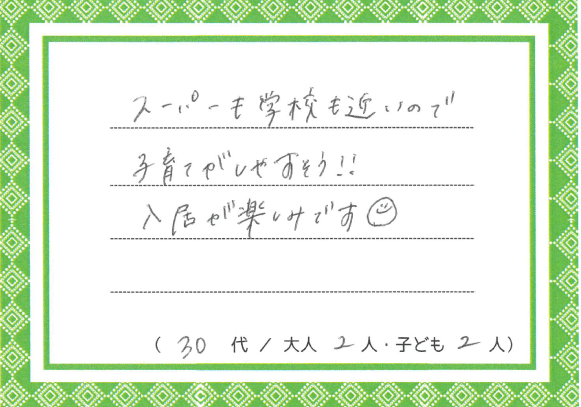 スーパーも学校も近いので
子育てがしやすそう!!
入居が楽しみです☺
(30代/大人2人・子ども2人)